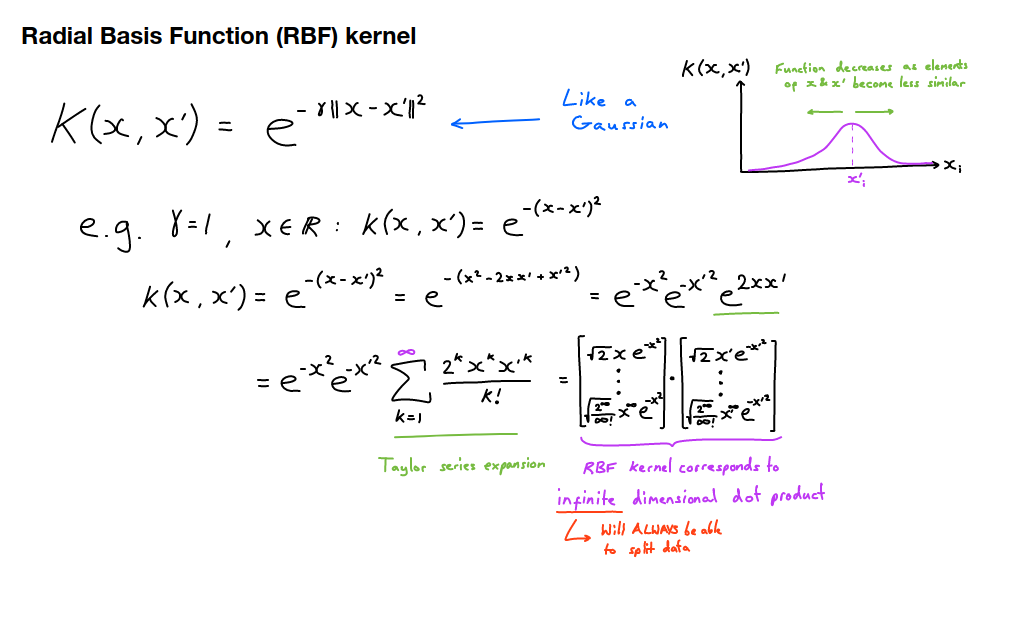 Radial Basis Function (RBF) kernel
K(x, x') = e^{-γ‖x - x'‖²}
Like a
Gaussian
K(x, x')
Function decreases as elements
of x & x' become less similar
x_i
x'_i
e.g. γ=1, x ∈ ℝ : K(x, x') = e^{-(x-x')²}
K(x, x') = e^{-(x-x')²} = e^{-(x²-2xx'+x'²)} = e^{-x²}e^{-x'²}e^{2xx'}
= e^{-x²}e^{-x'²} ∑_{k=1}^{∞} 2^k x^k x'^k / k! = [√2 x e^{-x²} ⋮ √(2^∞/∞!) x^∞ e^{-x²}] · [√2 x' e^{-x'²} ⋮ √(2^∞/∞!) x^∞ e^{-x'²}]
Taylor series expansion
RBF kernel corresponds to
infinite dimensional dot product
Will ALWAYS be able
to split data